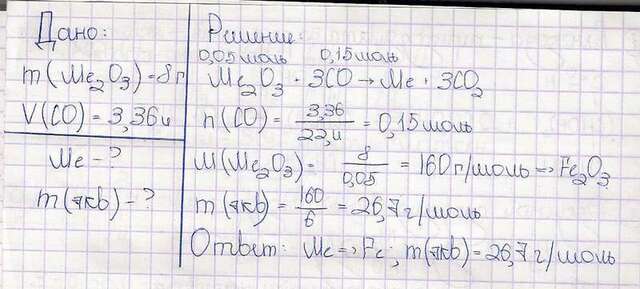 Дано:
m(Me₂O₃)=8г
V(CO)=3,36л
Me-?
m(экв)-?
Решение:
0,05моль 0,15моль
Me₂O₃ + 3CO → Me + 3CO₂
n(CO) = 3,36/22,4 = 0,15моль
M(Me₂O₃) = 8/0,05 = 160г/моль => Fe₂O₃
m(экв) = 160/6 = 26,7г/моль
Ответ: Me => Fe; m(экв) = 26,7г/моль